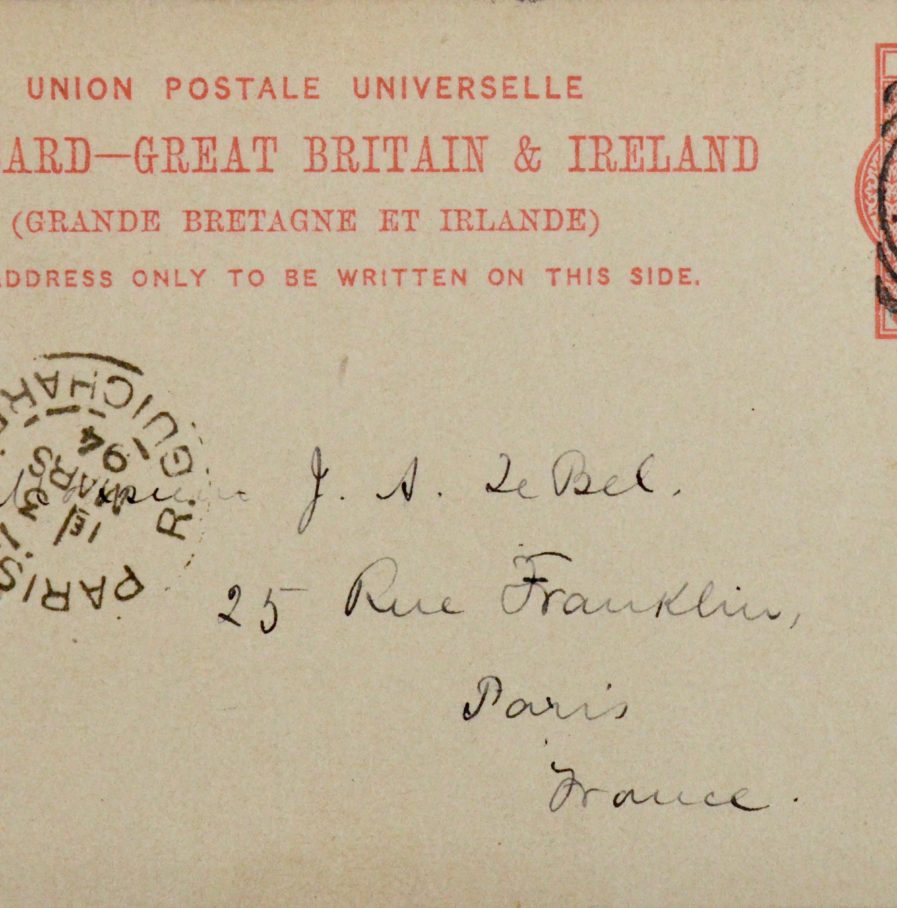 UNION POSTALE UNIVERSELLE
ARD—GREAT BRITAIN & IRELAND
(GRANDE BRETAGNE ET IRLANDE)
ADDRESS ONLY TO BE WRITTEN ON THIS SIDE.
PARIS R. GUICHAR
MARS
94
J. A. Le Bel.
25 Rue Franklin,
Paris
France.